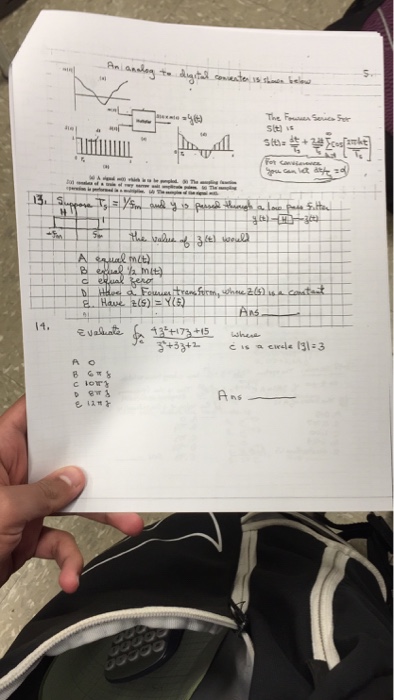 An analog to digital converter is shown below
5.
m(t)
(a)
The Fourier Series for
S(t) is
For convenience
you can let
(a) A signal m(t) which is to be sampled. (b) The sampling function
S(t) consists of a train of very narrow unit amplitude pulses. (c) The sampling
operation is performed in a multiplier. (d) The samples of the signal m(t).
13. Suppose Ts = 1/fm and y is passed through a low pass filter
H
-fm fm
y(t) — H — z(t)
The value of z(t) would
A equal m(t)
B equal 1/2 m(t)
C equal zero
D Have a Fourier transform, whose Z(f) is a constant
E. Have Z(f) = Y(f)
Ans
14.
Evaluate ∮c 4z²+17z+15 / z²+3z+2 where
c is a circle |z|=3
A 0
B 6πj
C 10πj
D 8πj
E 12πj
Ans